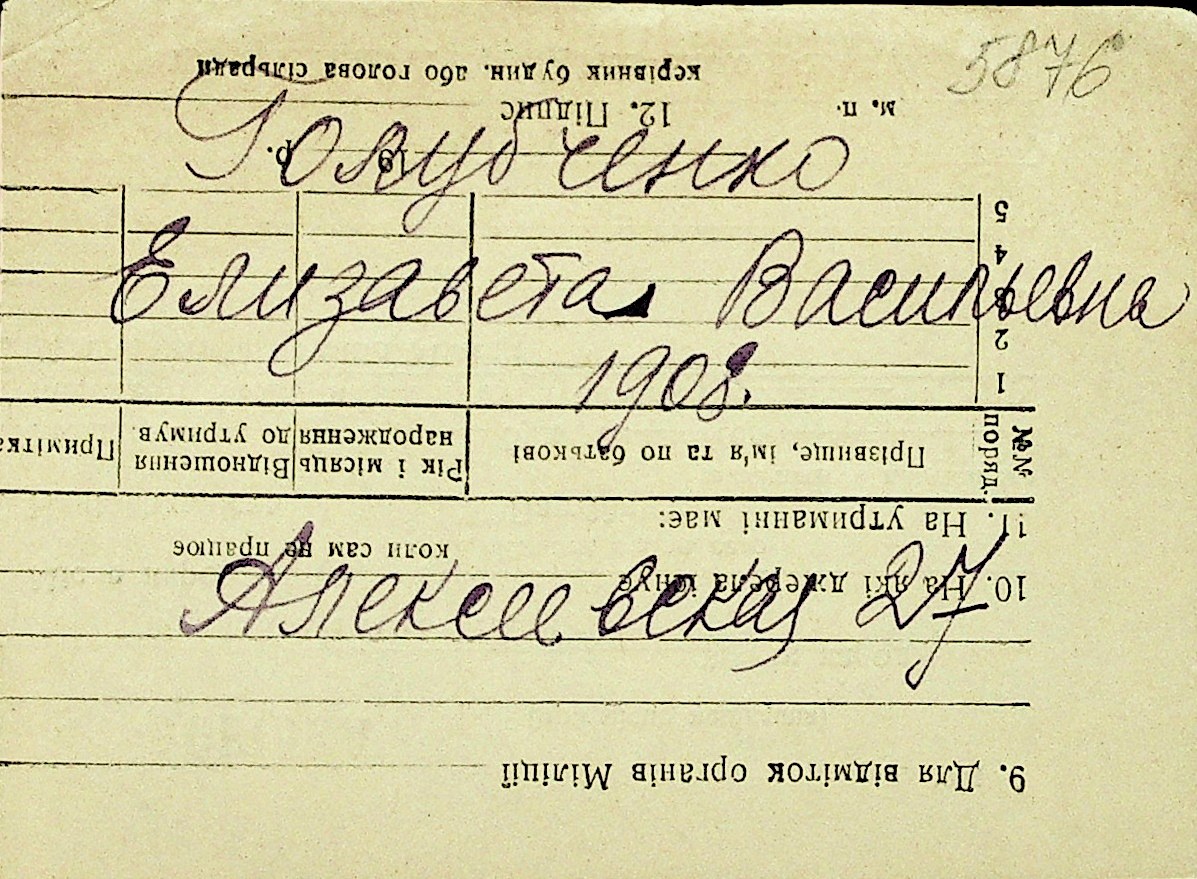 5876
Голубченко
Елизавета Васильевна
1908.
Алексеевская 27
9. Для відміток органів Міліції
10. На які джерела існує
коли сам не працює
11. На утриманні має:
№№ поряд.
Прізвище, ім'я та по батькові
Рік і місяць народження
Відношення до утримув.
Примітка
1
2
3
4
5
19 р.
м. п.
12. Підпис
керівник будин. або голова сільради